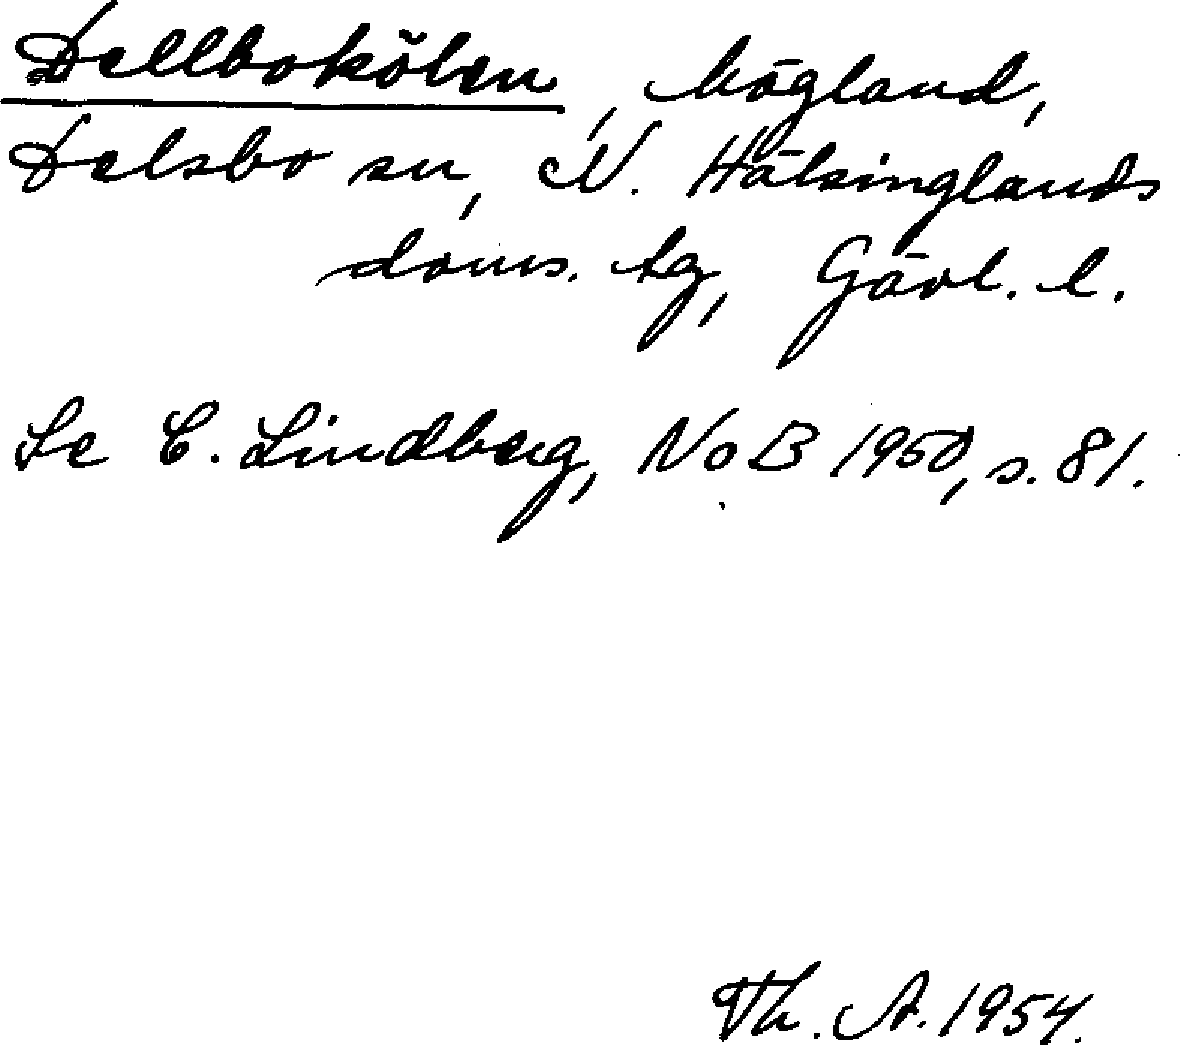 Dellbokölen, högland,
Delsbo sn, N. Hälsinglands
doms. tg, Gävl. l.
Se C. Lindberg, NoB 1950, s. 81.
Th. A. 1954.